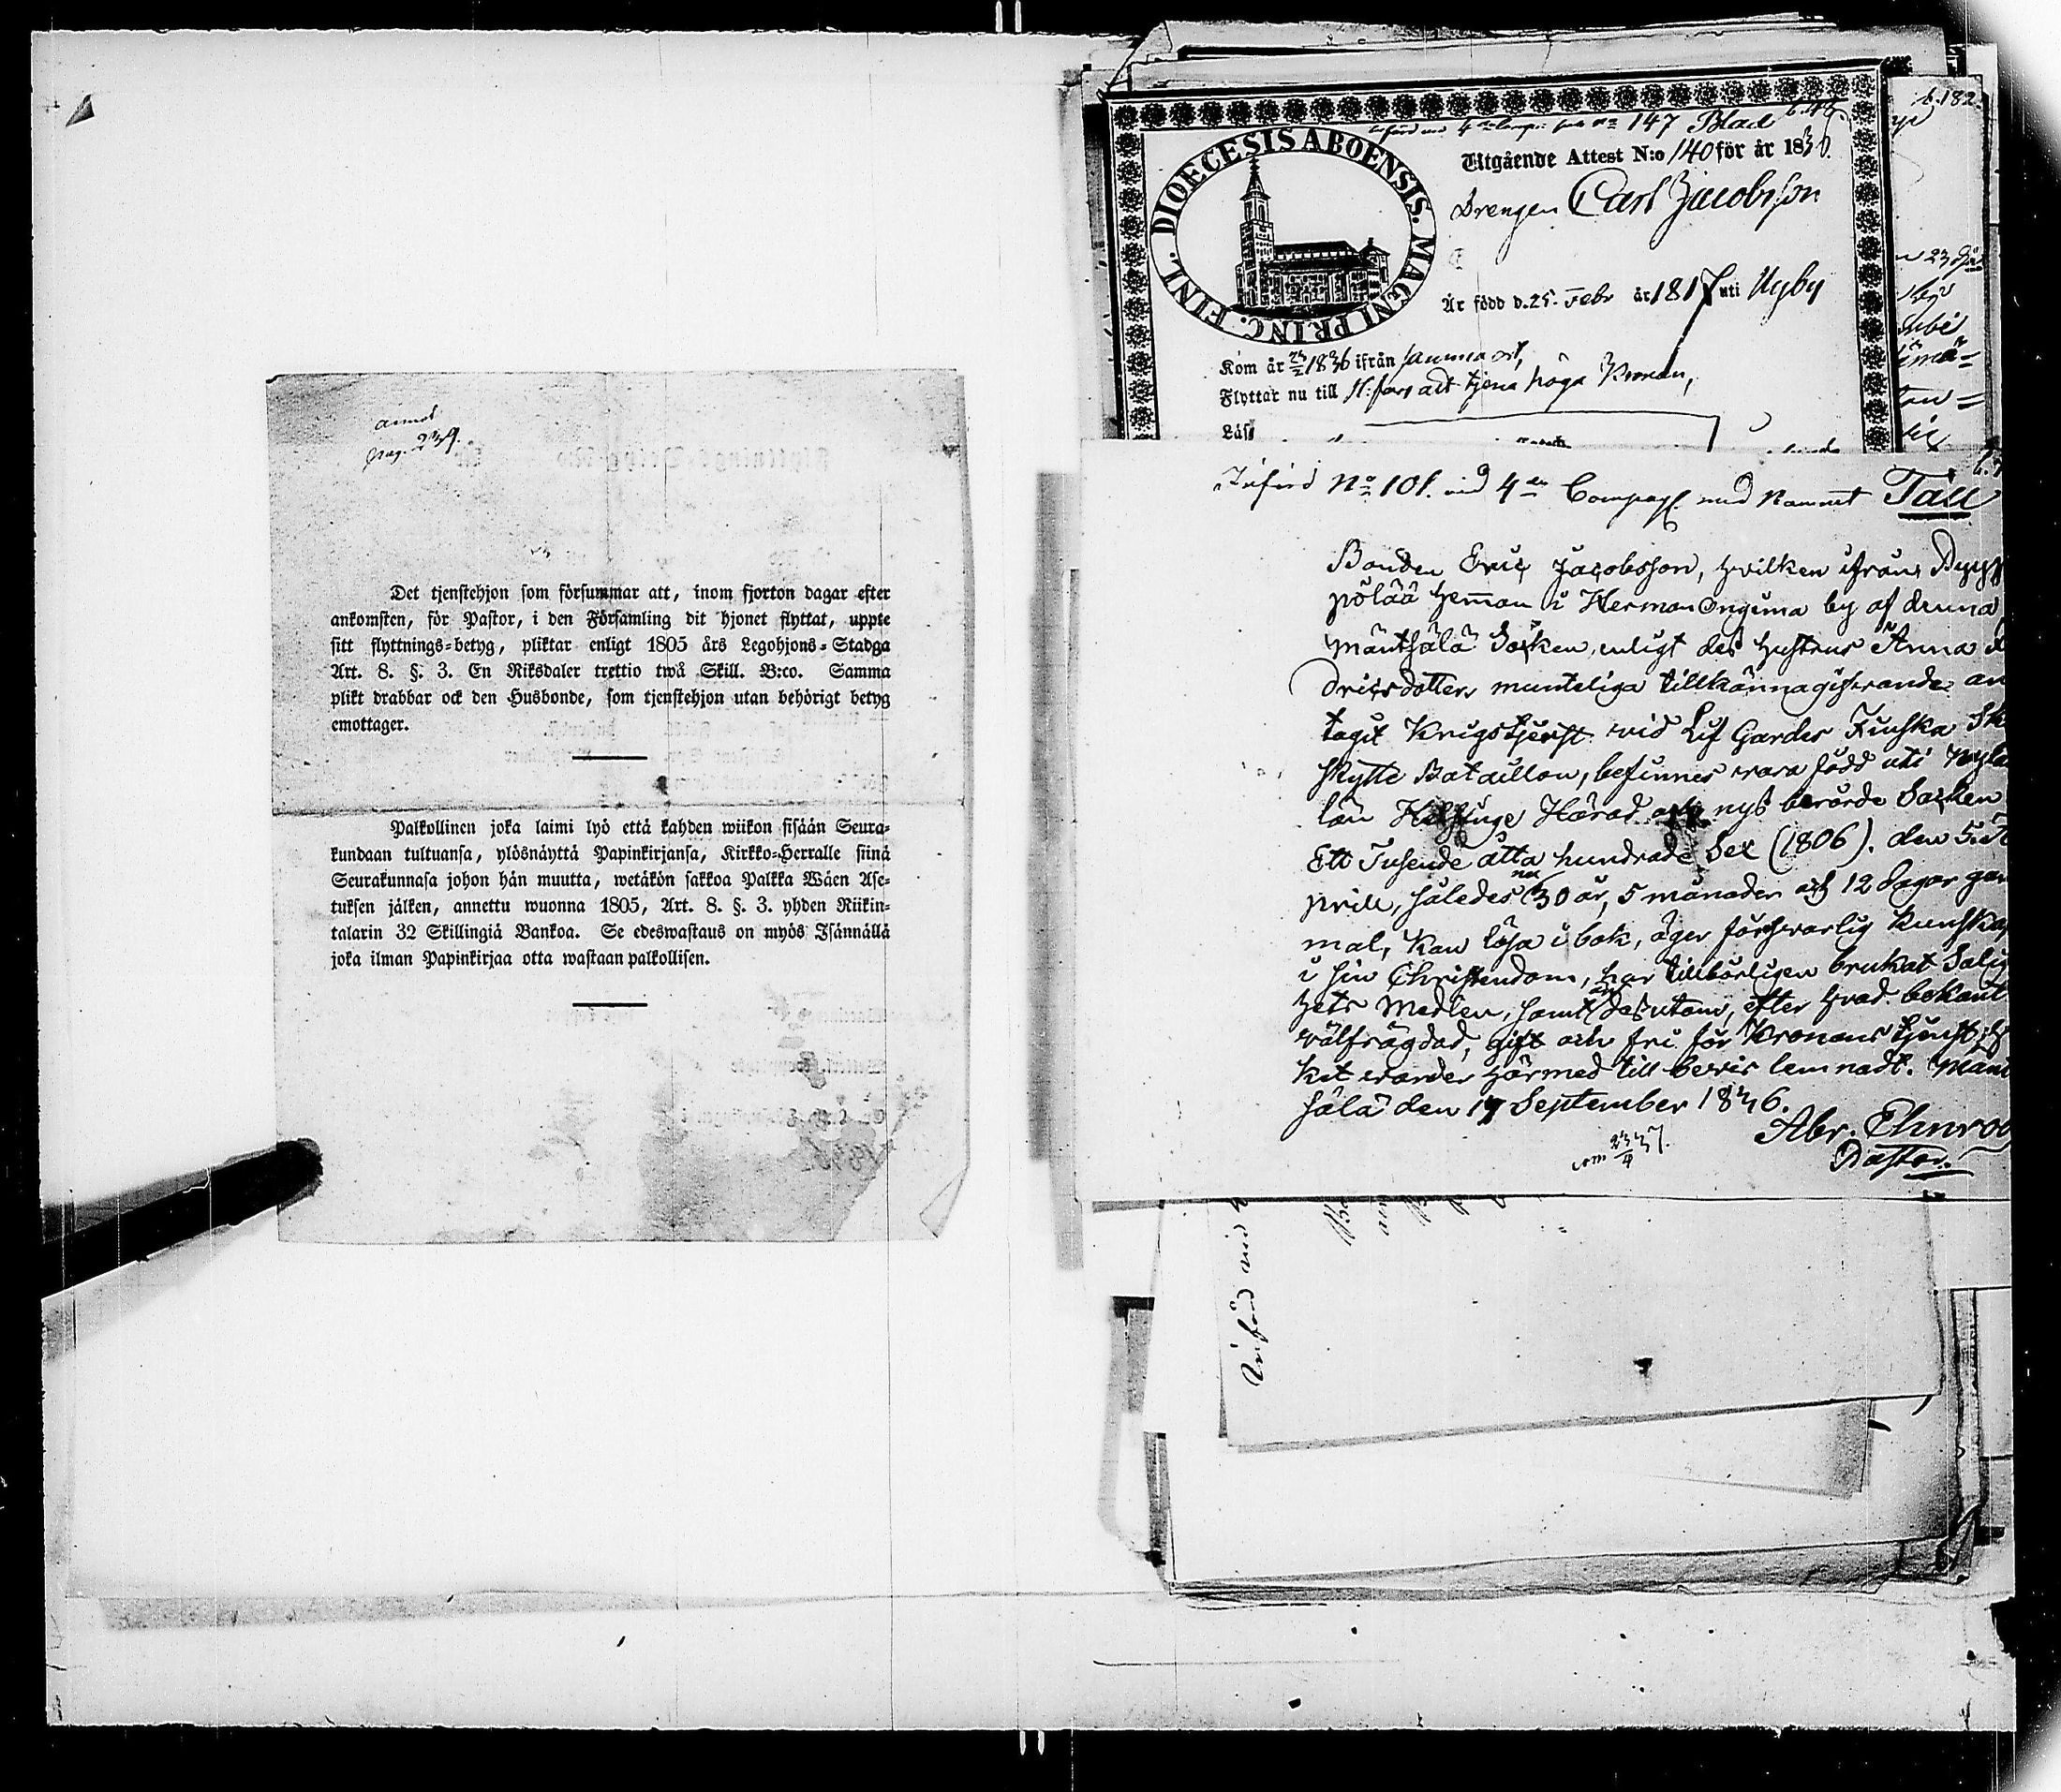 annot
pag. 239.
Det tjenstehjon som försummar att, inom fjorton dagar efter
ankomsten, för Pastor, i den Församling dit hjonet flyttat, uppte
sitt flyttnings-betyg, pliktar enligt 1805 års Legohjons-Stadga
Art. 8. §. 3. En Riksdaler trettio twå Skill. B:co. Samma
plikt drabbar ock den Husbonde, som tjenstehjon utan behörigt betyg
emottager.
Palkollinen joka laimi lyö että kahden wiikon sisään Seura-
kundaan tultuansa, ylösnäyttä Papinkirjansa, Kirkko-Herralle siinä
Seurakunnasa johon hän muutta, wetäkön sakkoa Palkka Wäen Ase-
tuksen jälken, annettu wuonna 1805, Art. 8. §. 3. yhden Riikin-
talarin 32 Skillingiä Bankoa. Se edeswastaus on myös Isännällä
joka ilman Papinkirjaa otta wastaan palkollisen.
b. 182.
147 Blad
DIOECESIS ABOENSIS. MAGNI PRINC. FINL.
Utgående Attest N:o 140 för år 1836.
Drengen Carl Jacobsson
Är född d. 25. Febr år 1817 uti Nyby
Kom år 1836 ifrån samma ort,
Flyttar nu till H:fors att tjena höga Kronan,
Läs
Införd No 101. vid 4de Compagt. med Namnet Tall
Bonden Eric Jacobsson, hvilken ifrån
pölää hemman i Herman by af denna
Mäntsälä Socken, enligt des hustrus Anna
Dricsdotters munteliga tillkännagifvande an
tagit Krigstjenst vid Lif Gardes Finska
skytte Bataillon, befinnes vara född uti Nyla
län Helsinge Härad och nys berörde Socken
Ett Tusende åtta hundrade Sex (1806). den 5. A
prill, således nu 30 år, 5 månader och 12 dagar gam
mal, Kan läsa i bok, äger försvarlig Kunskap
i sin Christendom, har tillbörligen brukat Salig
hets Medlen, samt är desutom, efter hvad bekant
välfrägdad, gift och fri för Kronans tjenst,
ket varder härmed till bevis lemnadt. Mänt
sälä den 17 September 1836.
Abr. Ehnroo
Pastor.
Införd vid